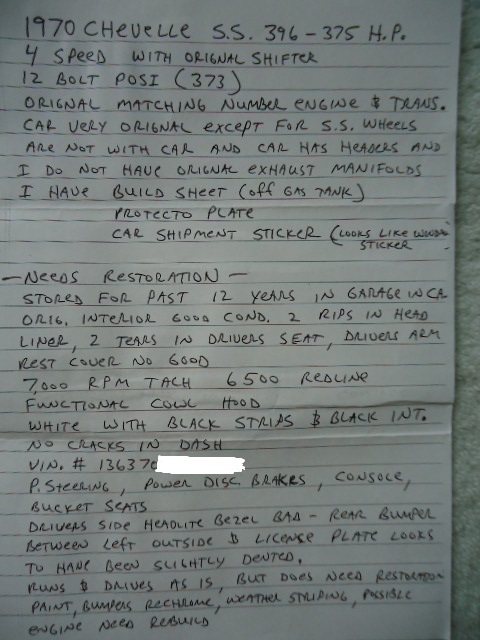 1970 CHEVELLE S.S. 396-375 H.P.
4 SPEED WITH ORIGNAL SHIFTER
12 BOLT POSI (373)
ORIGNAL MATCHING NUMBER ENGINE & TRANS.
CAR VERY ORIGNAL EXCEPT FOR S.S. WHEELS
ARE NOT WITH CAR AND CAR HAS HEADERS AND
I DO NOT HAVE ORIGNAL EXHAUST MANIFOLDS
I HAVE BUILD SHEET (OFF GAS TANK)
PROTECTO PLATE
CAR SHIPMENT STICKER (LOOKS LIKE WINDOW
STICKER
- NEEDS RESTORATION -
STORED FOR PAST 12 YEARS IN GARAGE IN CA
ORIG. INTERIOR GOOD COND. 2 RIPS IN HEAD
LINER, 2 TEARS IN DRIVERS SEAT, DRIVERS ARM
REST COVER NO GOOD
7,000 RPM TACH 6500 REDLINE
FUNCTIONAL COWL HOOD
WHITE WITH BLACK STRIPS & BLACK INT.
NO CRACKS IN DASH
VIN. # 136370
P. STEERING, POWER DISC BRAKES, CONSOLE,
BUCKET SEATS
DRIVERS SIDE HEADLITE BEZEL BAD - REAR BUMPER
BETWEEN LEFT OUTSIDE & LICENSE PLATE LOOKS
TO HAVE BEEN SLIGHTLY DENTED.
RUNS & DRIVES AS IS, BUT DOES NEED RESTORATION
PAINT, BUMPERS RECHROME, WEATHER STRIPING, POSSIBLE
ENGINE NEED REBUILD